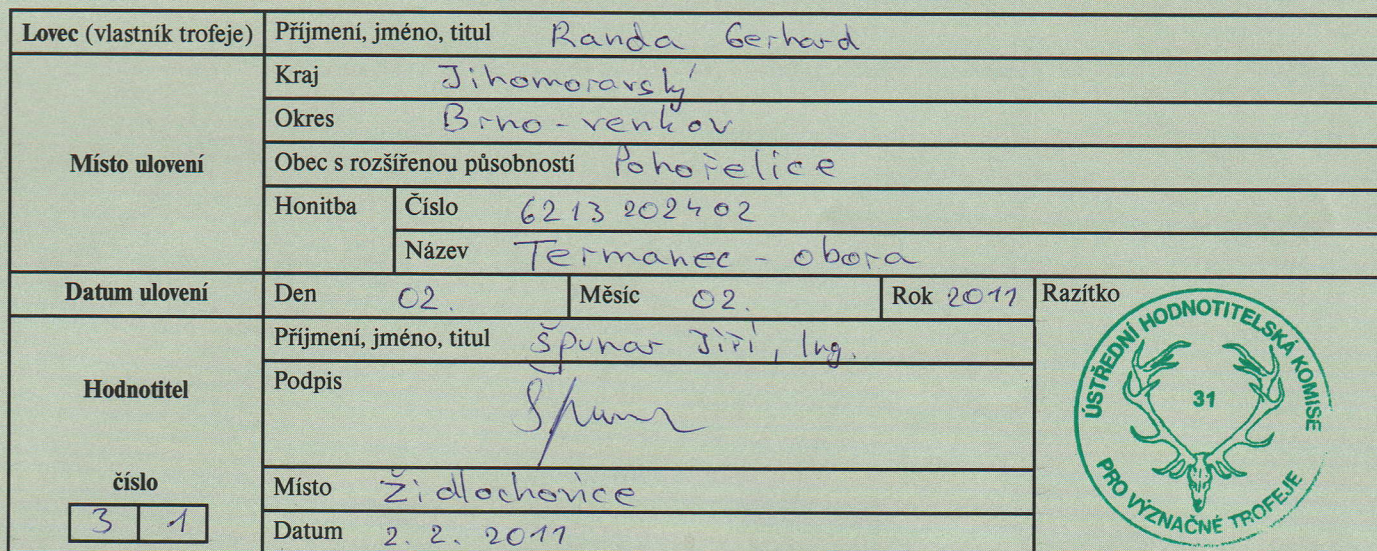 Lovec (vlastník trofeje) Příjmení, jméno, titul Randa Gerhard
Kraj Jihomoravský
Okres Brno-venkov
Místo ulovení Obec s rozšířenou působností Pohořelice
Honitba Číslo 6213 202402
Název Termanec - obora
Datum ulovení Den 02. Měsíc 02. Rok 2011 Razítko
Příjmení, jméno, titul Špunar Jiří, Ing.
Hodnotitel Podpis
číslo Místo Židlochovice
3 1 Datum 2. 2. 2011
ÚSTŘEDNÍ HODNOTITELSKÁ KOMISE
31
PRO VÝZNAČNÉ TROFEJE